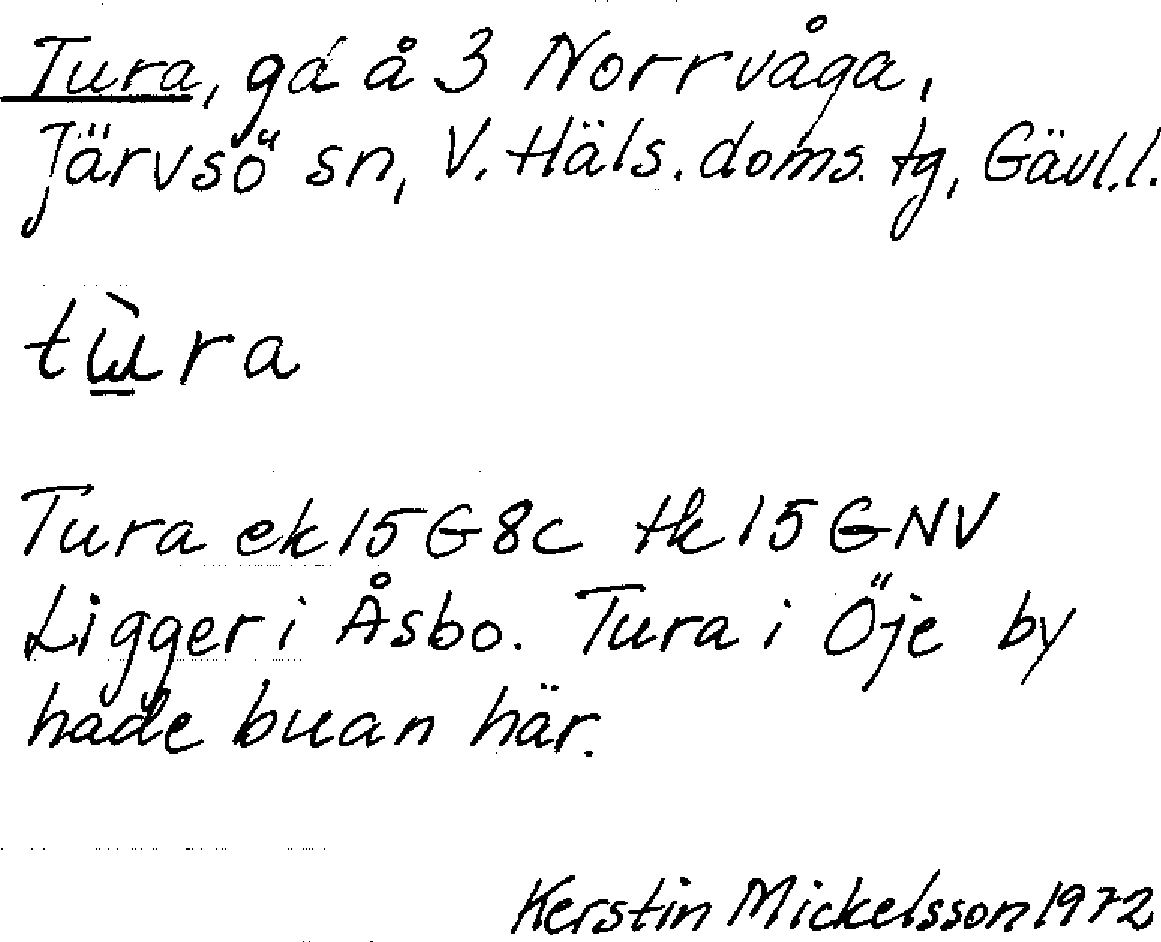 Tura, gå å 3 Norrvåga,
Järvsö sn, V. Häls. doms. tg, Gävl.l.
tɯ̀ra
Tura ek 15 G 8c tk 15 GNV
Ligger i Åsbo. Tura i Öje by
hade buan här.
Kerstin Mickelsson 1972